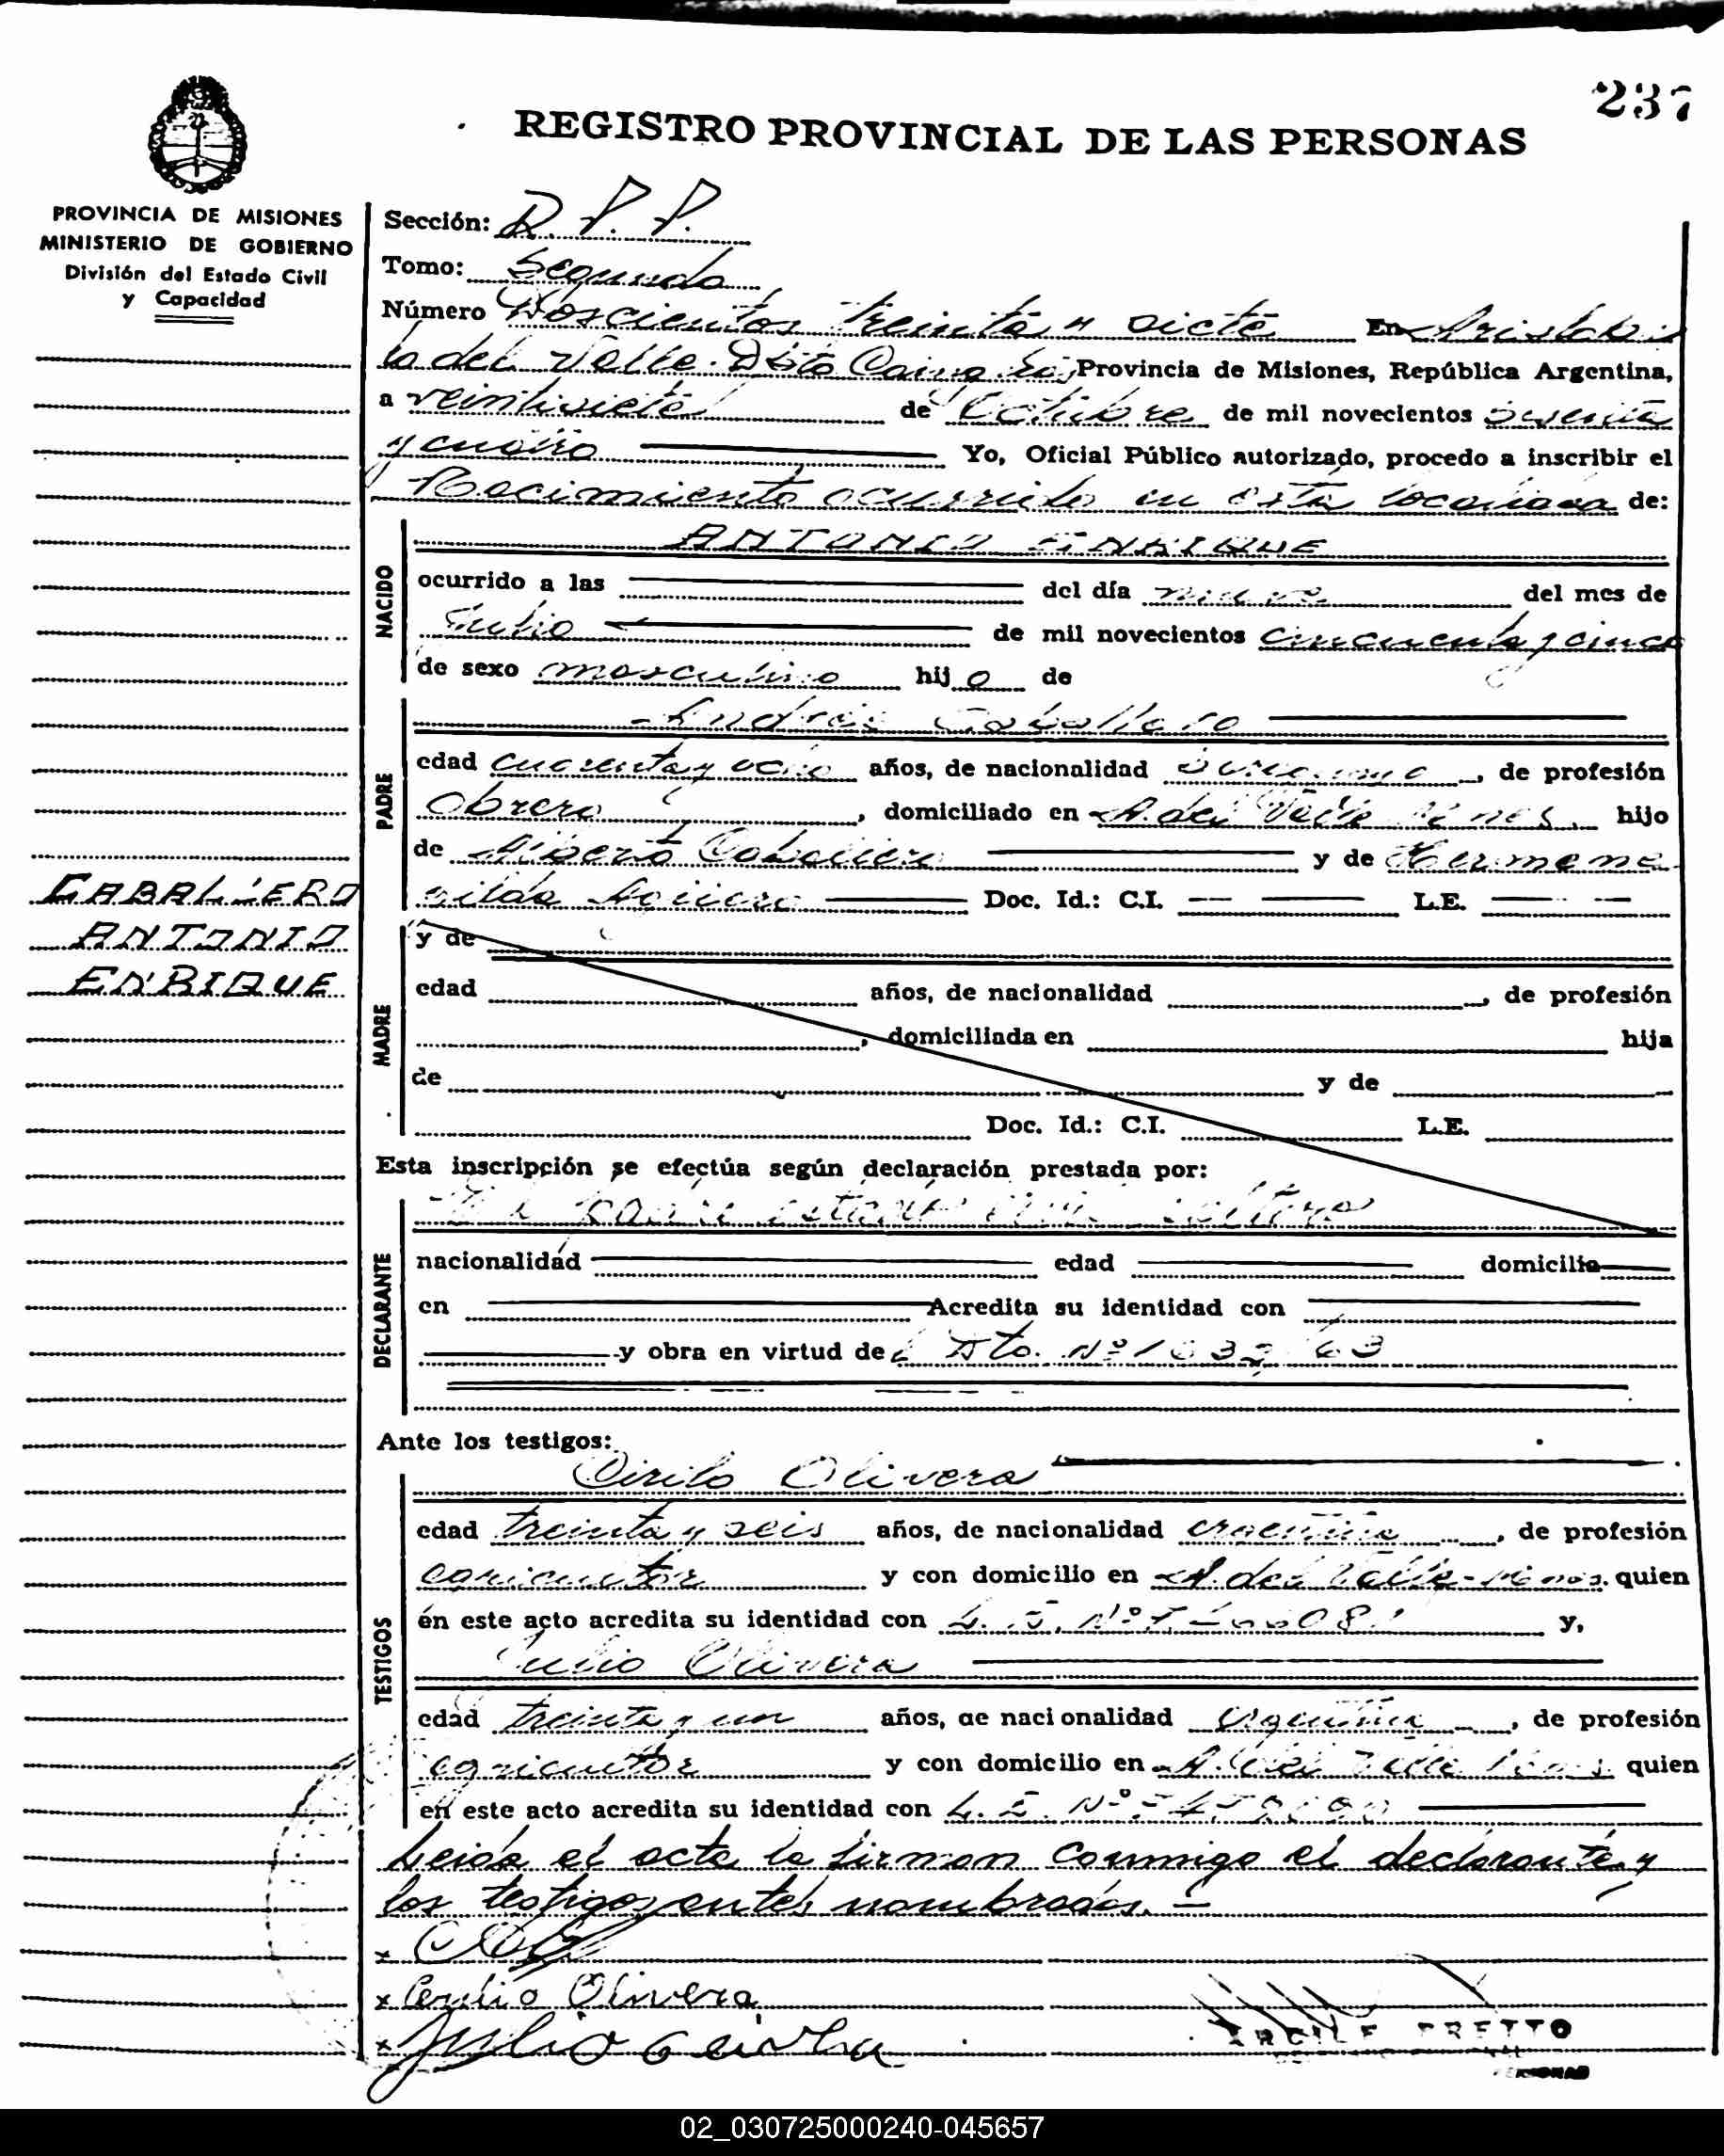 237
REGISTRO PROVINCIAL DE LAS PERSONAS
PROVINCIA DE MISIONES
MINISTERIO DE GOBIERNO
División del Estado Civil
y Capacidad
Sección: R. P. P.
Tomo: Segundo
Número Doscientos treinta y siete En Aristóbu
lo del Valle Dpto Cainguás, Provincia de Misiones, República Argentina,
a veintisiete de Octubre de mil novecientos sesenta
y cuatro Yo, Oficial Público autorizado, procedo a inscribir el
Nacimiento ocurrido en esta localidad de:
NACIDO
ANTONIO ENRIQUE
ocurrido a las del día nueve del mes de
Julio de mil novecientos cincuenta y cinco
de sexo masculino hijo de
PADRE
Andrés Caballero
edad cuarenta y ocho años, de nacionalidad, de profesión
Obrero, domiciliado en A. del Valle Mnes. hijo
de Alberto Caballero y de Hermene
gilda Agüero Doc. Id.: C.I. L.E.
CABALLERO
ANTONIO
ENRIQUE
MADRE
y de
edad años, de nacionalidad, de profesión
, domiciliada en hija
de y de
Doc. Id.: C.I. L.E.
Esta inscripción se efectúa según declaración prestada por:
DECLARANTE
El padre estado civil soltero
nacionalidad edad domicilio
en Acredita su identidad con
y obra en virtud del Dto. Nº 1632/63
Ante los testigos:
TESTIGOS
Cirilo Olivera
edad treinta y seis años, de nacionalidad argentina, de profesión
agricultor y con domicilio en A. del Valle - Mnes. quien
en este acto acredita su identidad con L. E. Nº y,
Julio Olivera
edad treinta y un años, de nacionalidad argentina, de profesión
agricultor y con domicilio en A. del Valle Mnes. quien
en este acto acredita su identidad con L. E. Nº
Leída el acta la firman conmigo el declarante y
los testigos antes nombrados. -
x
x Cirilio Olivera
x Julio
PRETTO
02_030725000240-045657